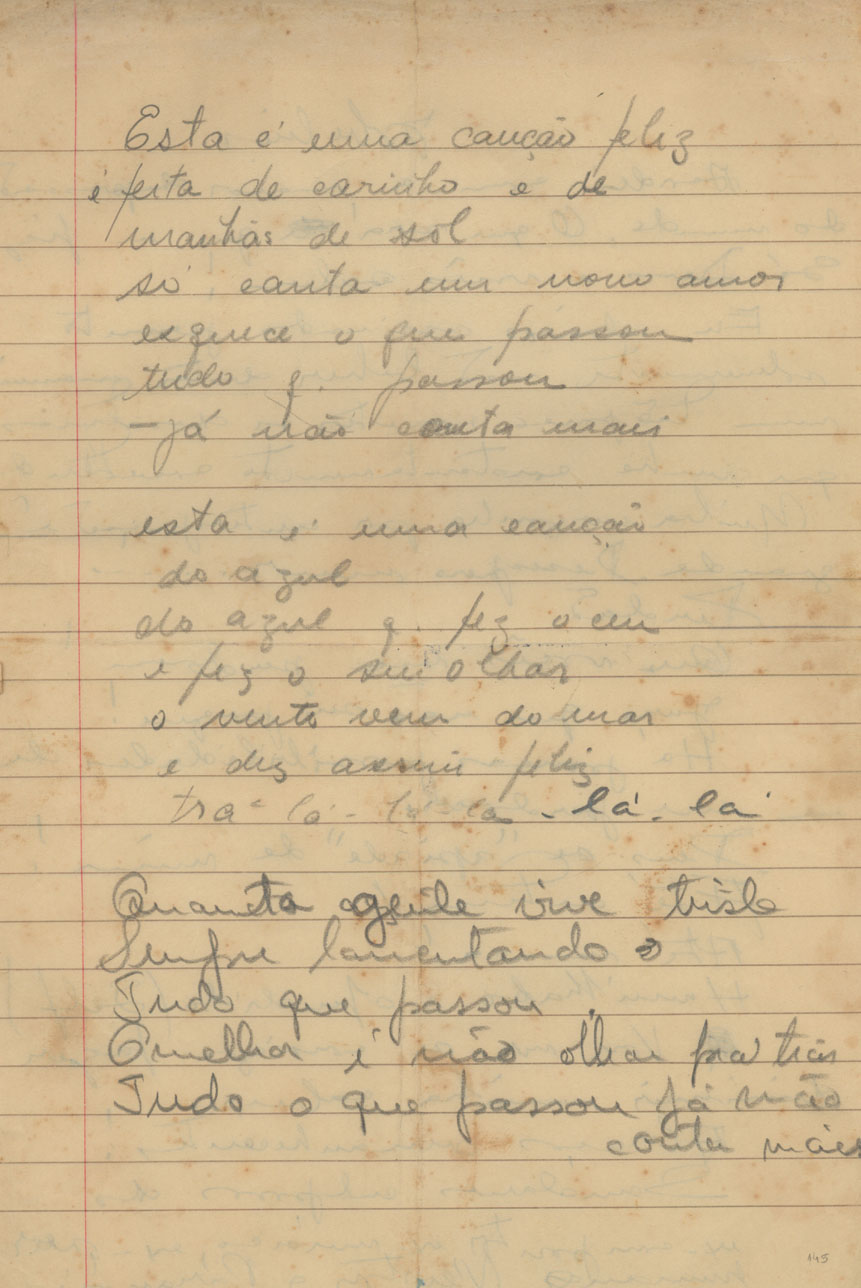 Esta é uma canção feliz
é feita de carinho e de
manhãs de sol
só canta um novo amor
esquece o que passou
tudo q. passou
- já não conta mais
esta é uma canção
do azul
do azul q. fez o ceu
e fez o seu olhar
o vento vem do mar
e diz assim feliz
tra-lá-la-la-lá-la
Quanta gente vive triste
Sempre lamentando
Tudo que passou.
O melhor é não olhar pra trás
Tudo o que passou já não
conta mais
145